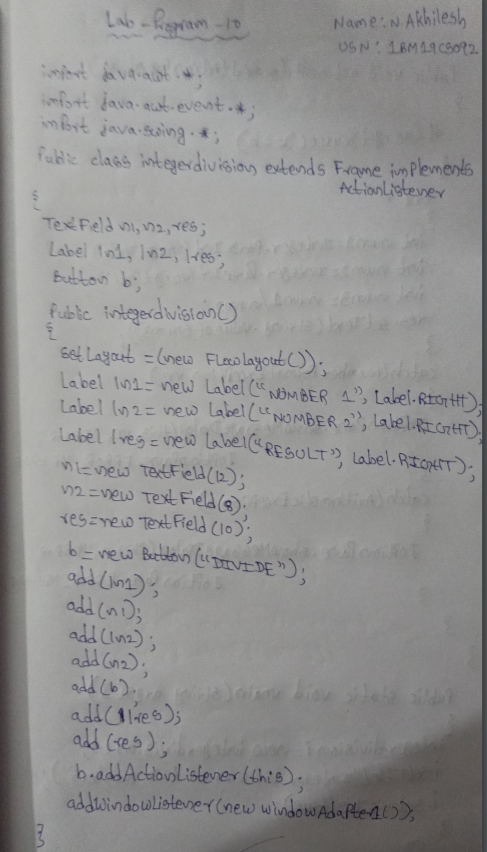 Lab - Program - 10
Name: N. Akhilesh
USN: 1BM19CS092
import java.awt.*;
import java.awt.event.*;
import java.swing.*;
Public class integerdivision extends Frame implements
ActionListener
{
TextField n1, n2, res;
Label ln1, ln2, lres;
Button b;
Public integerdivision()
{
setLayout = (new FlowLayout());
Label ln1 = new Label("NUMBER 1", Label.RIGHT);
Label ln2 = new Label("NUMBER 2", Label.RIGHT);
Label lres = new Label("RESULT", Label.RIGHT);
n1 = new TextField(12);
n2 = new TextField(8);
res = new TextField(10);
b = new Button("DIVIDE");
add(ln1);
add(n1);
add(ln2);
add(n2);
add(b);
add(lres);
add(res);
b.addActionListener(this);
addWindowListener(new WindowAdapter1());
}